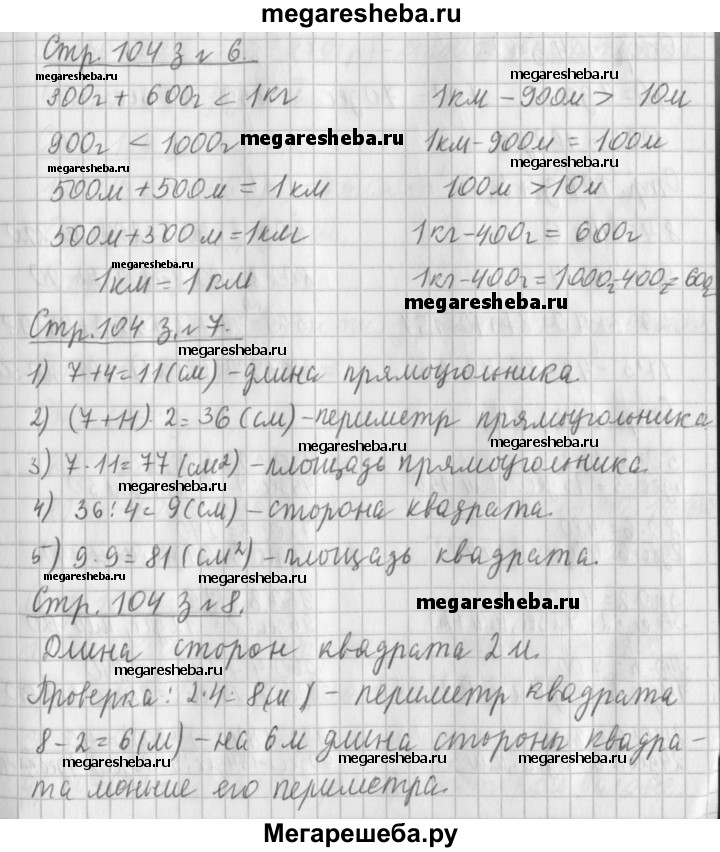 megaresheba.ru
Стр. 104 з № 6.
megaresheba.ru megaresheba.ru
300г + 600г < 1кг 1км - 900м > 10м
900г < 1000г megaresheba.ru 1км-900м = 100м
megaresheba.ru megaresheba.ru
500м + 500м = 1км 100м > 10м
500м+500м = 1км 1кг-400г = 600г
megaresheba.ru
1км = 1км 1кг-400г = 1000г-400г = 600г
megaresheba.ru
Стр. 104 з. № 7.
megaresheba.ru
1) 7+4=11(см) - длина прямоугольника.
megaresheba.ru
2) (7+11)·2=36(см) - периметр прямоугольника
megaresheba.ru megaresheba.ru
3) 7·11=77(см²) - площадь прямоугольника.
megaresheba.ru
4) 36:4=9(см) - сторона квадрата.
megaresheba.ru
5) 9·9=81(см²) - площадь квадрата.
megaresheba.ru megaresheba.ru
Стр. 104 з № 8. megaresheba.ru
Длина сторон квадрата 2м.
megaresheba.ru
Проверка: 2·4=8(м) - периметр квадрата
megaresheba.ru
8-2=6(м) - на 6м длина стороны квадра-
megaresheba.ru megaresheba.ru megaresheba.ru
та меньше его периметра.
megaresheba.ru
Мегарешеба.ру